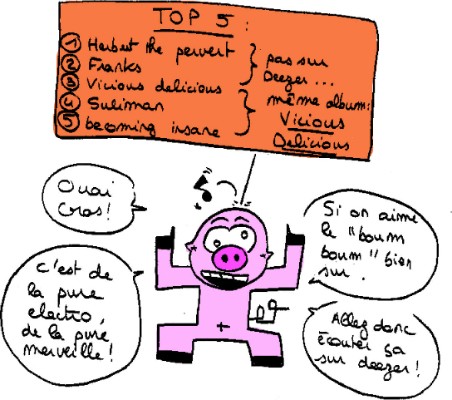 TOP 5 :
1 Herbert the pervert
2 Franks
3 Vicious delicious
4 Suliman
5 becoming insane
pas sur
Deezer...
même album:
Vicious
Delicious
Ouai
Gros!
c'est de
la pure
electro,
de la pure
merveille!
Si on aime
le "boum
boum" bien
sur.
Allez donc
écouter ça
sur deezer!